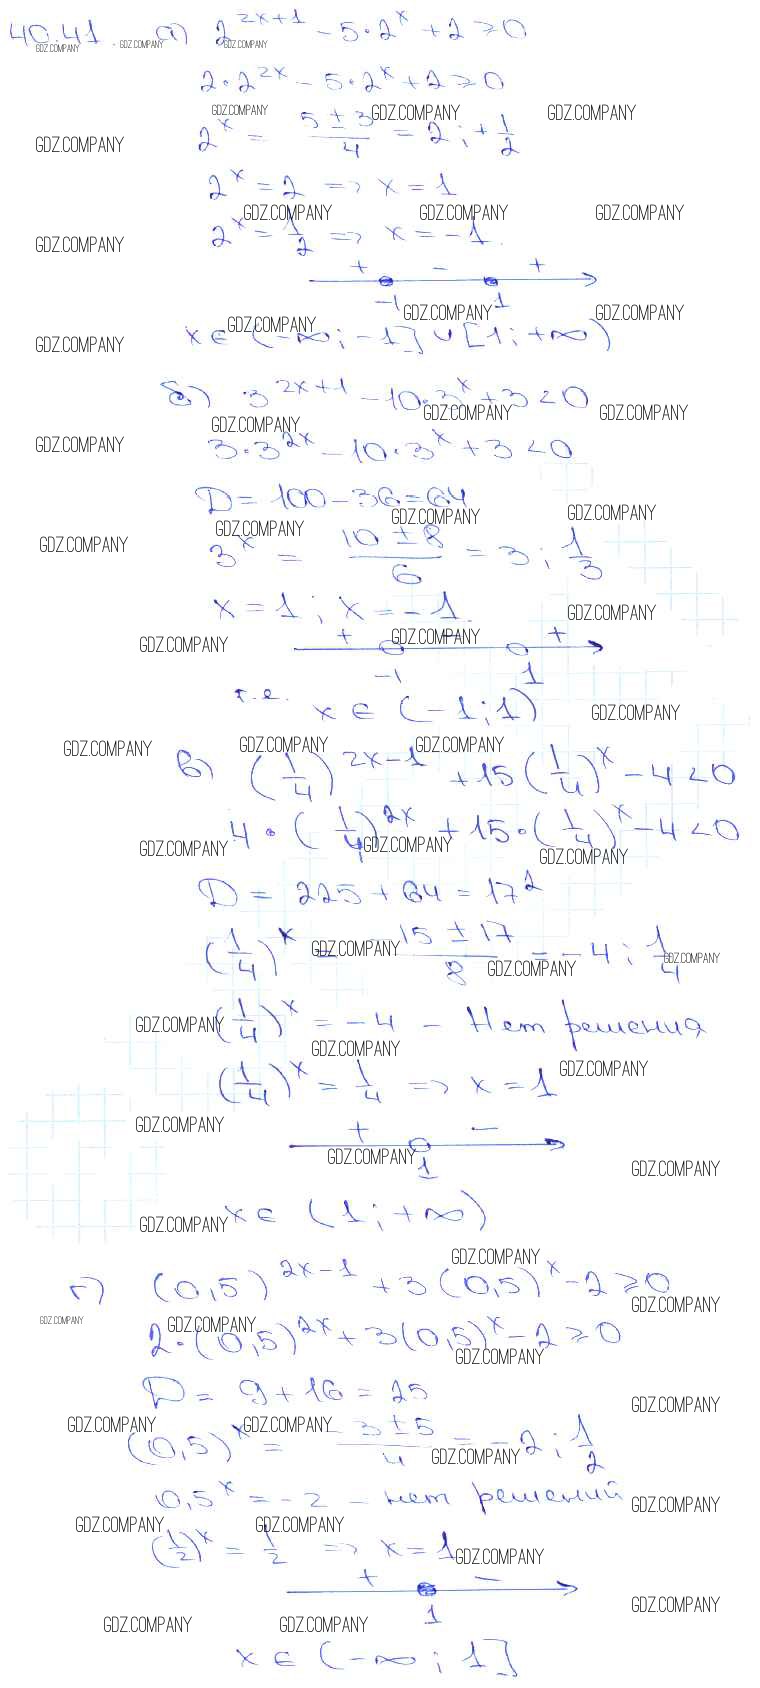 40.41. а) 2^(2x+1) - 5·2^x + 2 ≥ 0
2·2^(2x) - 5·2^x + 2 ≥ 0
2^x = (5 ± 3)/4 = 2; +1/2
2^x = 2 => x = 1
2^x = 1/2 => x = -1
+ - +
-1 1
x ∈ (-∞; -1] ∪ [1; +∞)
б) 3^(2x+1) - 10·3^x + 3 < 0
3·3^(2x) - 10·3^x + 3 < 0
D = 100 - 36 = 64
3^x = (10 ± 8)/6 = 3; 1/3
x = 1; x = -1
+ - +
-1 1
т.е. x ∈ (-1; 1)
в) (1/4)^(2x-1) + 15(1/4)^x - 4 < 0
4·(1/4)^(2x) + 15·(1/4)^x - 4 < 0
D = 225 + 64 = 17^2
(1/4)^x = (-15 ± 17)/8 = -4; 1/4
(1/4)^x = -4 - Нет решения
(1/4)^x = 1/4 => x = 1
+ -
1
x ∈ (1; +∞)
г) (0,5)^(2x-1) + 3(0,5)^x - 2 ≥ 0
2·(0,5)^(2x) + 3(0,5)^x - 2 ≥ 0
D = 9 + 16 = 25
(0,5)^x = (-3 ± 5)/4 = -2; 1/2
0,5^x = -2 - нет решений
(1/2)^x = 1/2 => x = 1
+ -
1
x ∈ (-∞; 1]
GDZ.COMPANY